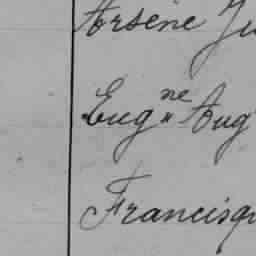 Arsène Ju
Eug.ne Aug
Francisqu